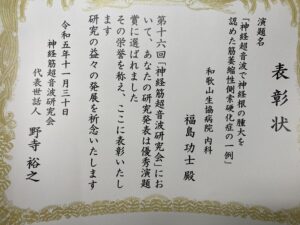 表彰状
演題名
「神経超音波で神経根の腫大を
認めた筋萎縮性側索硬化症の一例」
和歌山生協病院 内科
福島 功士 殿
第十六回「神経筋超音波研究会」にお
いて、あなたの研究発表は優秀演題
賞に選ばれました
その栄誉を称え、ここに表彰いたし
ます
研究の益々の発展を祈念いたします
令和五年十一月三十日
神経筋超音波研究会
代表世話人 野寺 裕之